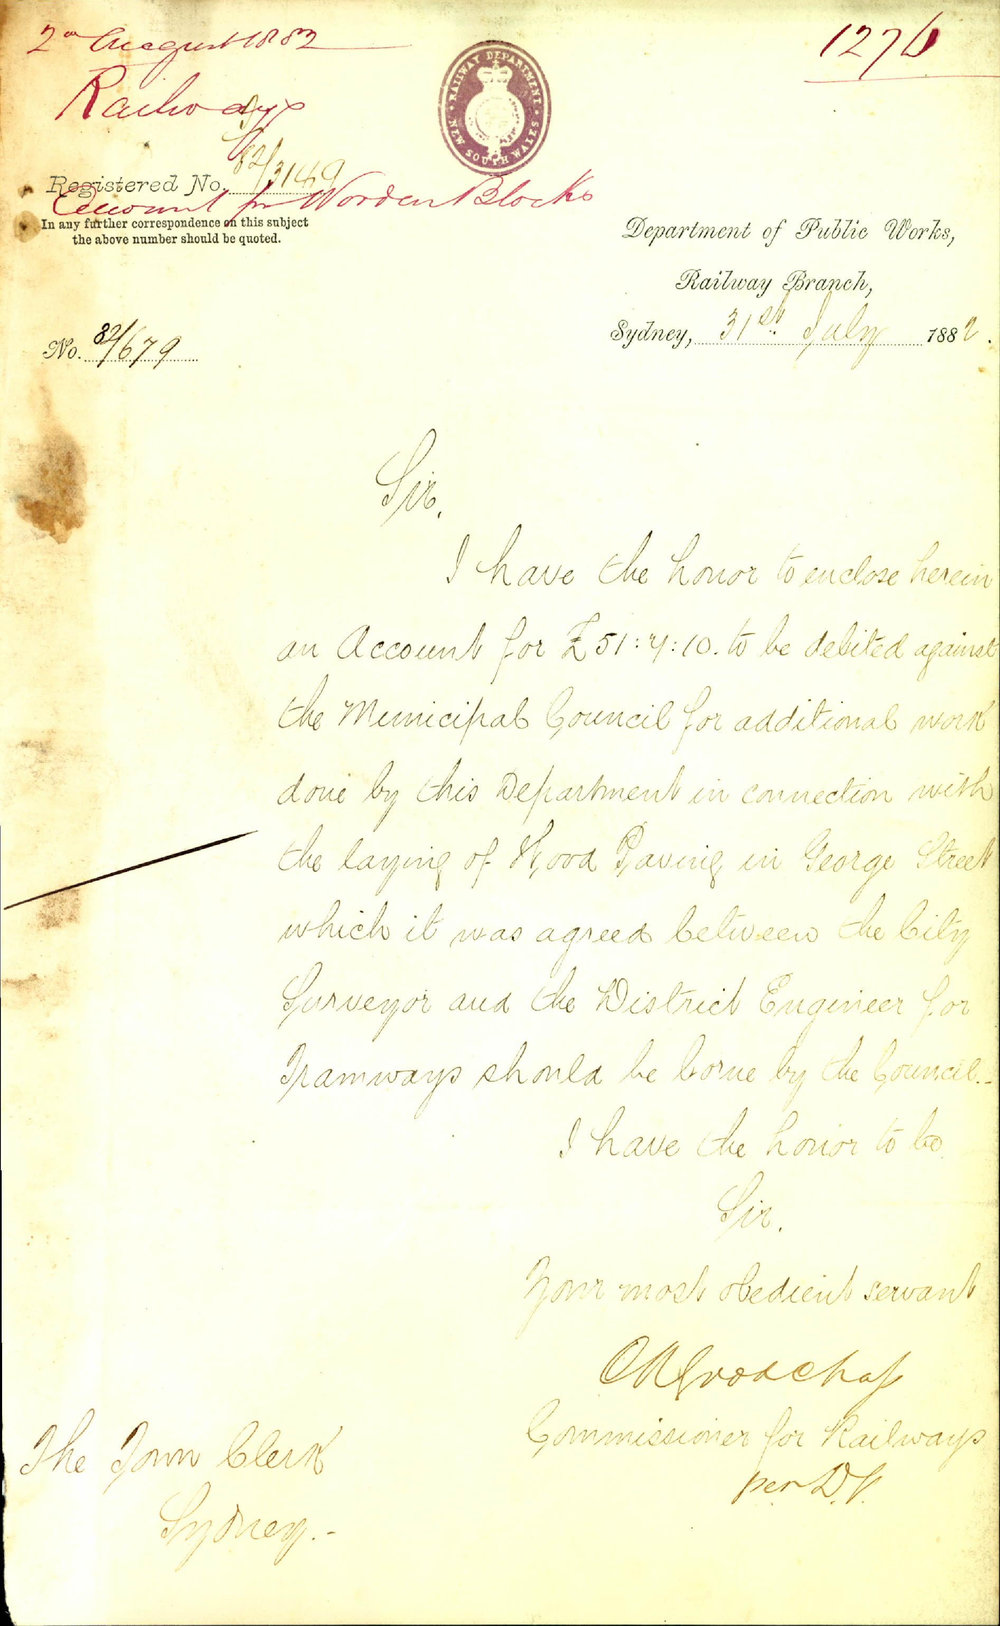 2nd August 1882
1276
Railways
RAILWAY DEPARTMENT
NEW SOUTH WALES
Registered No. 82/3149
Account for Wooden Blocks
In any further correspondence on this subject
the above number should be quoted.
Department of Public Works,
Railway Branch,
No. 82/679
Sydney, 31st July 1882.
Sir,
I have the honor to enclose herein
an Account for £51:4:10. to be debited against
the Municipal Council for additional work
done by this Department in connection with
the laying of Wood Paving in George Street
which it was agreed between the City
Surveyor and the District Engineer for
Tramways should be borne by the Council.
I have the honor to be
Sir,
Your most obedient servant
Goodchap
Commissioner for Railways
per D.V.
The Town Clerk
Sydney.-